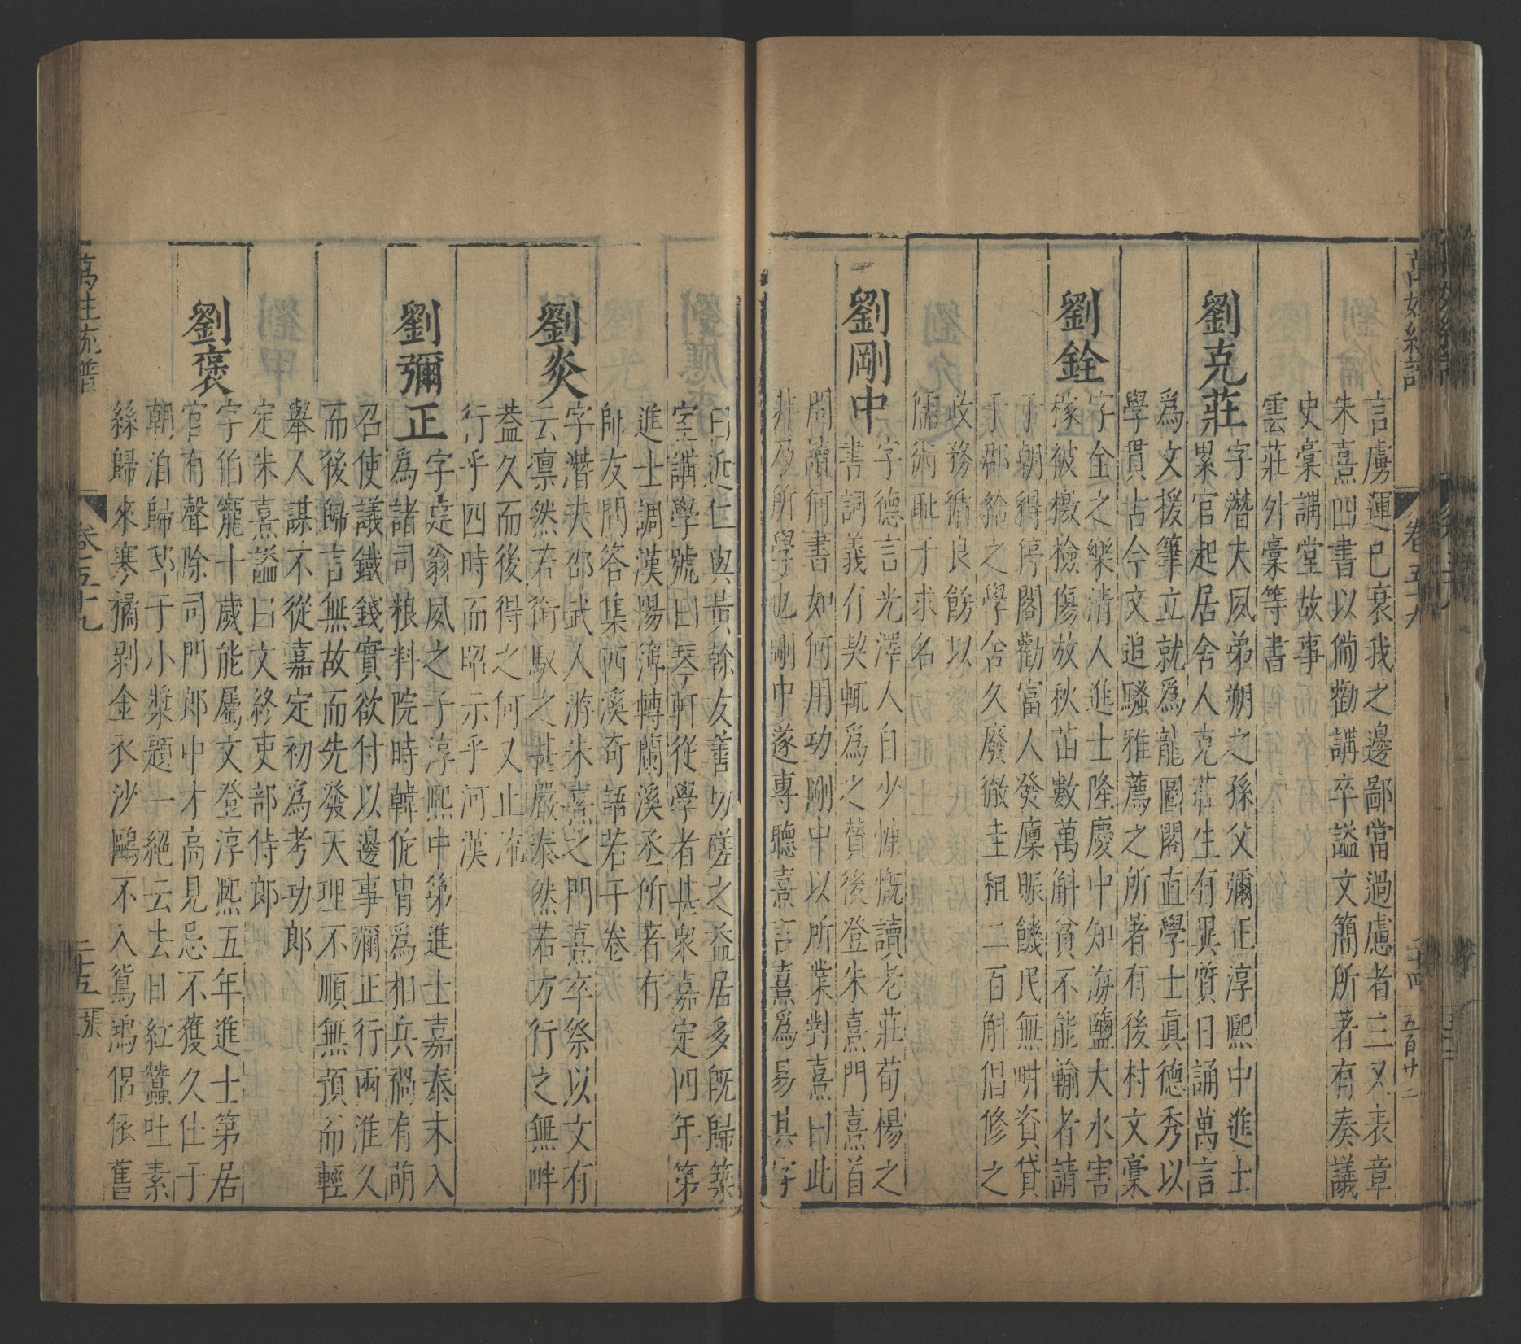 萬姓統譜
卷五十九
二十四
五百廿二
言虜運已衰我之邊鄙當過慮者三又表章
朱熹四書以備勸講卒謚文簡所著有奏議
史稾講堂故事
雲莊外稾等書
劉克莊
字潛夫夙弟朔之孫父彌正淳熙中進士
累官起居舍人克莊生有異質日誦萬言
為文援筆立就為龍圖閣直學士真德秀以
學貫古今文追騷雅薦之所著有後村文稾
劉銓
字金之樂清人進士隆慶中知海鹽大水害
稼被檄檢傷放秋苗數萬斛貧不能輸者請
于朝得停閣勸富人發廩賑饑民無咁資貸
于鄰給之學舍久廢微圭租二百斛倡修之
政務循良飭以
儒術耻于求名
劉剛中
字德言光澤人自少慷慨讀老莊荀楊之
書詞義有契輒為之贊後登朱熹門熹首
問讀何書如何用功剛中以所業對熹曰此
非吾所學也剛中遂專聽熹言熹為易其字
曰近仁與黃榦友善切磋之益居多既歸築
室講學號曰琴軒從學者甚衆嘉定四年第
進士調漢陽簿轉蘭溪丞所著有
師友問答集西溪奇語若干卷
劉炎
字潛夫邵武人游朱熹之門熹卒祭以文有
云凛然若銜馭之甚嚴泰然若方行之無畔
益久而後得之何又止淹
行乎四時而昭示乎河漢
劉彌正
字退翁夙之子淳熙中第進士嘉泰末入
為諸司粮料院時韓侂胄為相兵禍有萌
召使議鐵錢實欲付以邊事彌正行兩淮久
而後歸言無故而先發天理不順無預而輕
舉人謀不從嘉定初為考功郎
定朱熹謚曰文終吏部侍郎
劉褒
字伯寵十歲能屬文登淳熙五年進士第居
官有聲除司門郎中才高見忌不獲久仕于
朝泊歸邸于小槳題一絕云去日紅蠶吐素
絲歸來寒橘剥金衣沙鷗不入鴛鴻侶依舊
萬姓統譜
卷五十九
二十五
張